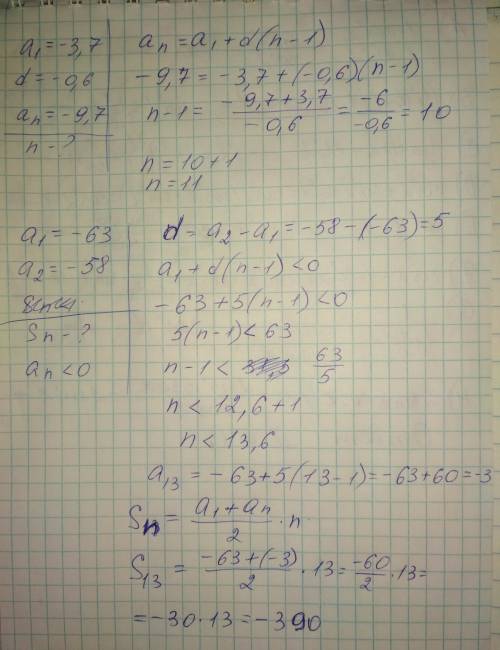 a₁ = -3,7
d = -0,6
aₙ = -9,7
n - ?
aₙ = a₁ + d(n-1)
-9,7 = -3,7 + (-0,6)(n-1)
n-1 = (-9,7+3,7)/(-0,6) = -6/-0,6 = 10
n = 10+1
n = 11
a₁ = -63
a₂ = -58
Sn - ?
aₙ < 0
d = a₂ - a₁ = -58 - (-63) = 5
a₁ + d(n-1) < 0
-63 + 5(n-1) < 0
5(n-1) < 63
n-1 < 63/5
n < 12,6+1
n < 13,6
a₁₃ = -63+5(13-1) = -63+60 = -3
Sn = (a₁ + aₙ)/2 · n
S₁₃ = (-63+(-3))/2 · 13 = -60/2 · 13 =
= -30 · 13 = -390